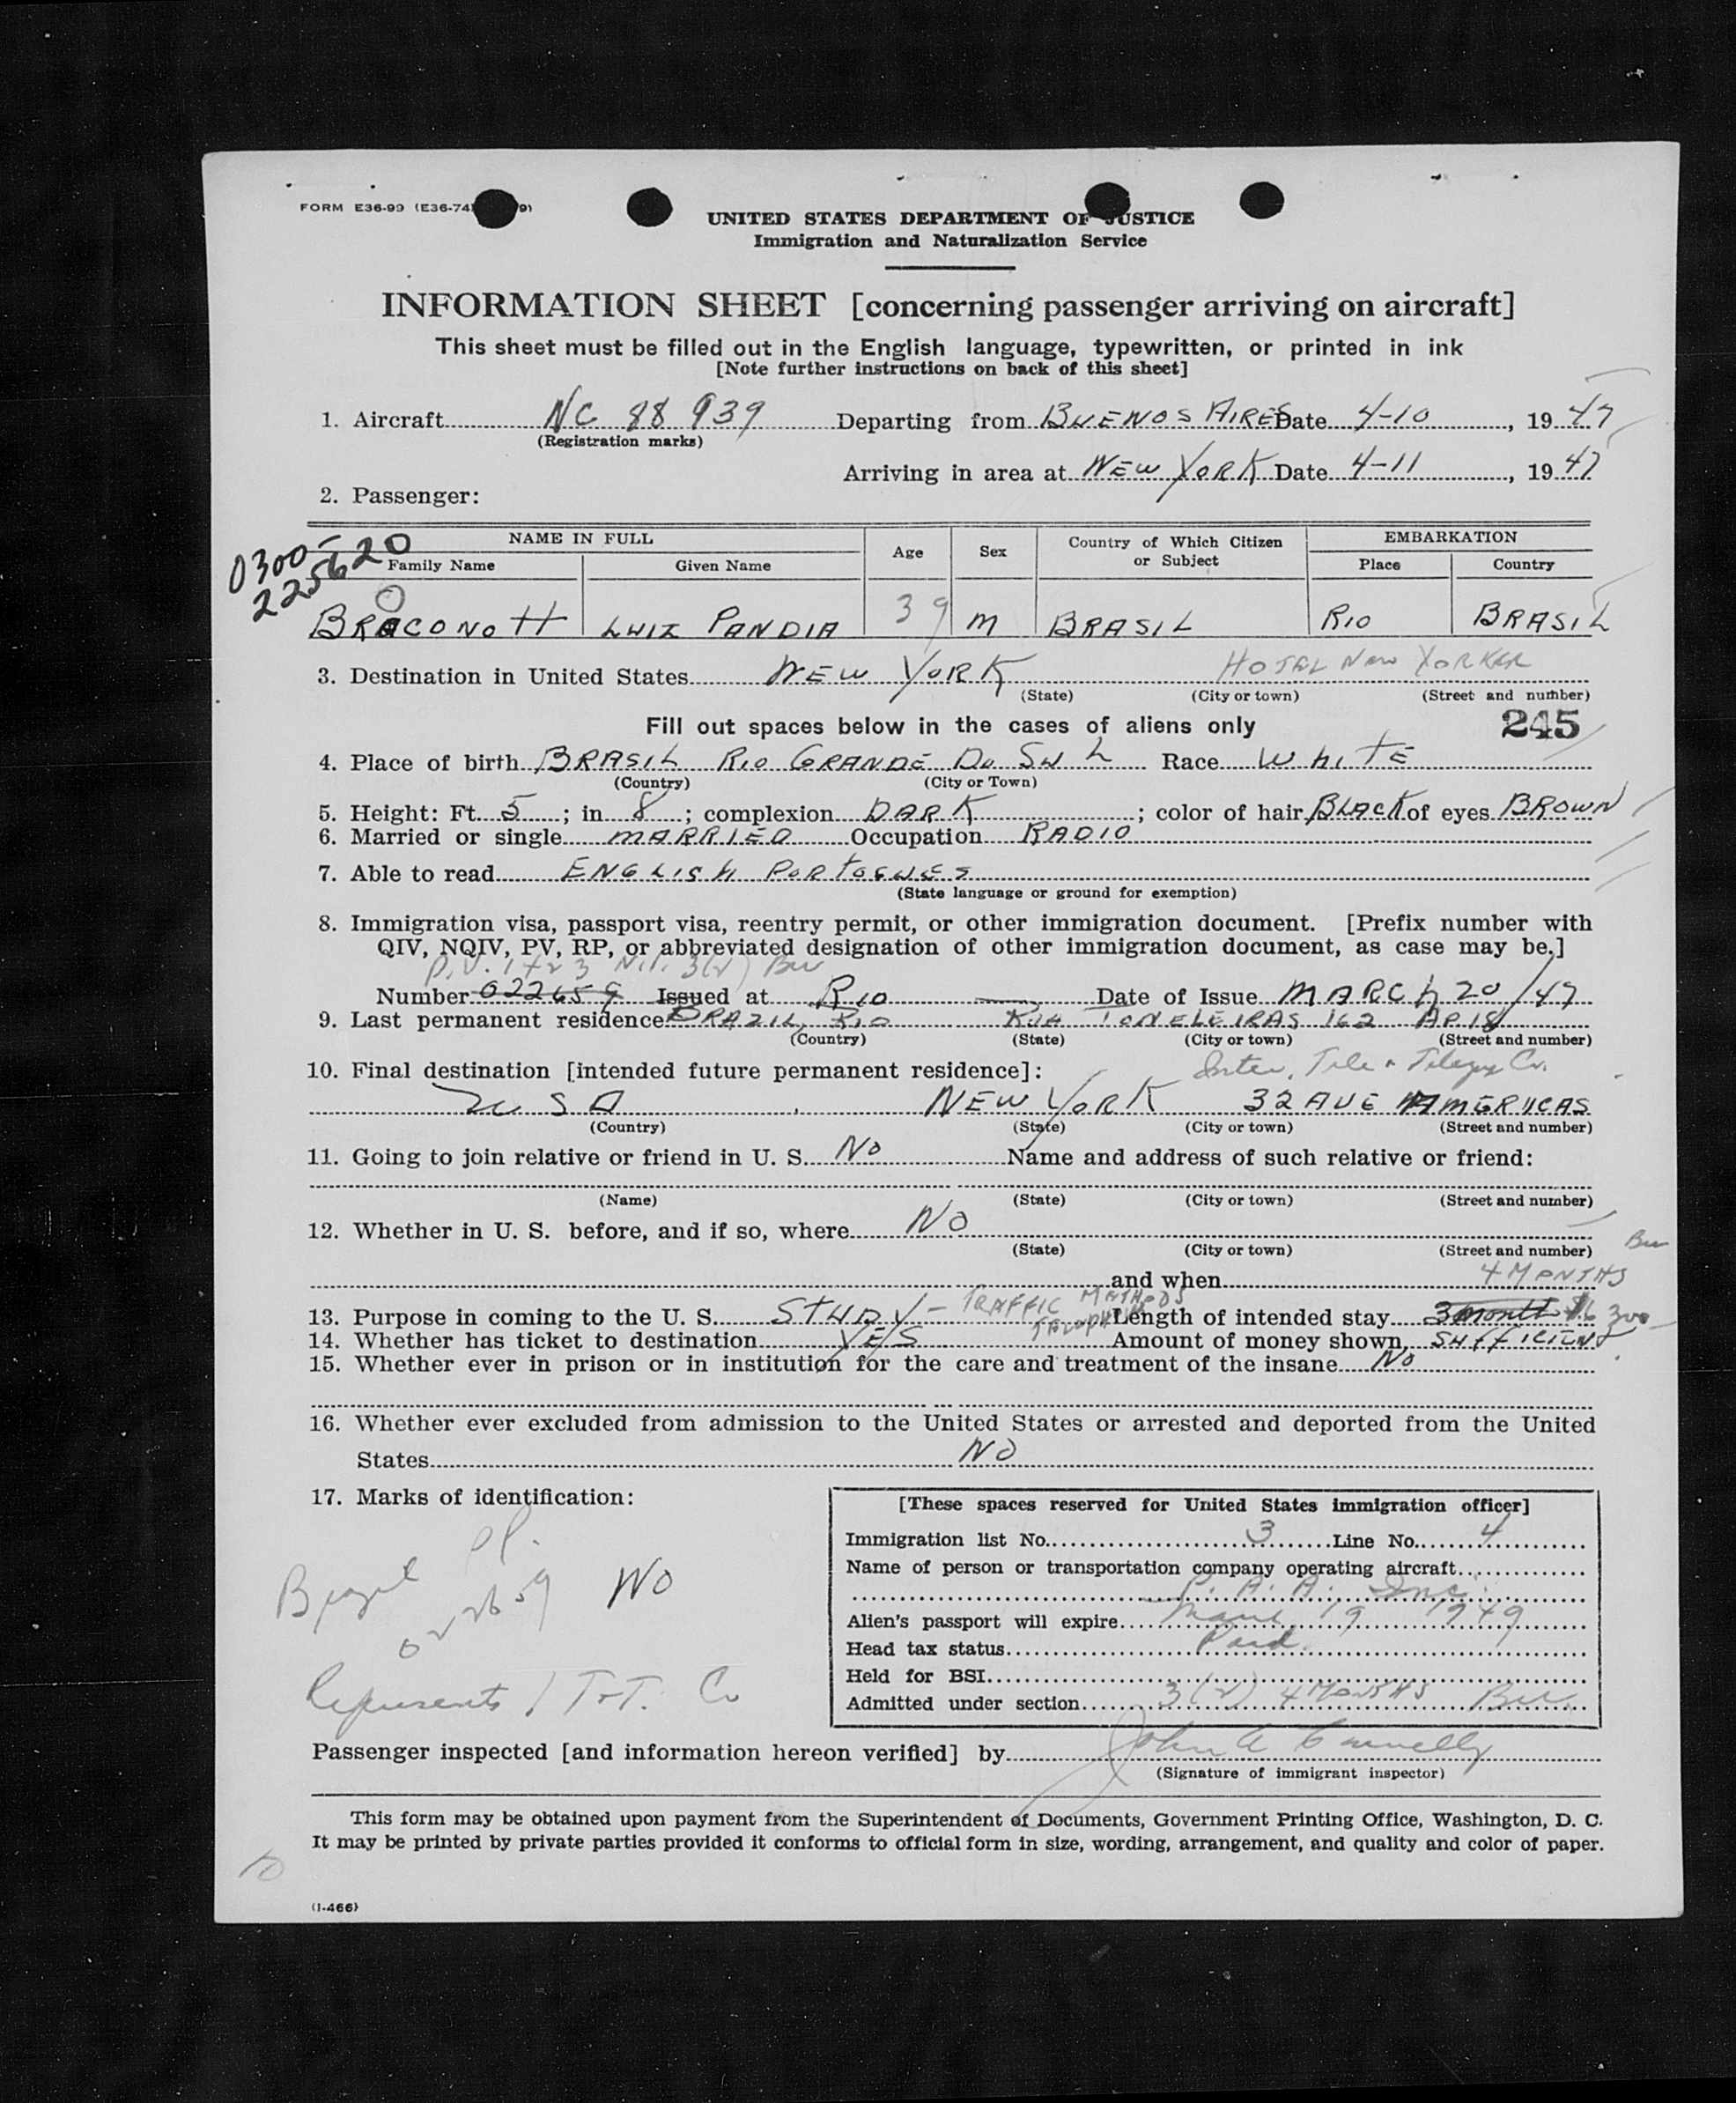 FORM E36-99 (E36-74) 9)
UNITED STATES DEPARTMENT OF JUSTICE
Immigration and Naturalization Service
INFORMATION SHEET [concerning passenger arriving on aircraft]
This sheet must be filled out in the English language, typewritten, or printed in ink
[Note further instructions on back of this sheet]
1. Aircraft NC 88 939 Departing from BUENOS AIRES Date 4-10, 1947
(Registration marks)
Arriving in area at NEW YORK Date 4-11, 1947
2. Passenger:
0300-
225620
NAME IN FULL Age Sex Country of Which Citizen or Subject EMBARKATION
Family Name Given Name Place Country
O
BRACONOTT LUIZ PANDIA 39 M BRASIL RIO BRASIL
3. Destination in United States NEW YORK HOTEL NEW YORKER
(State) (City or town) (Street and number)
Fill out spaces below in the cases of aliens only 245
4. Place of birth BRASIL RIO GRANDE DO SUL Race WHITE
(Country) (City or Town)
5. Height: Ft. 5; in 8; complexion DARK; color of hair BLACK of eyes BROWN
6. Married or single MARRIED Occupation RADIO
7. Able to read ENGLISH PORTOGUES
(State language or ground for exemption)
8. Immigration visa, passport visa, reentry permit, or other immigration document. [Prefix number with
QIV, NQIV, PV, RP, or abbreviated designation of other immigration document, as case may be.]
P.V. 1423 3(2)
Number 022659 Issued at RIO Date of Issue MARCH 20/47
9. Last permanent residence BRAZIL RIO RUA TONELEIRAS 162 AP 18
(Country) (State) (City or town) (Street and number)
10. Final destination [intended future permanent residence]: Inter. Tele & Co.
USA NEW YORK 32 AVE AMERIICAS
(Country) (State) (City or town) (Street and number)
11. Going to join relative or friend in U. S. NO Name and address of such relative or friend:
(Name) (State) (City or town) (Street and number)
12. Whether in U. S. before, and if so, where NO
(State) (City or town) (Street and number)
and when 4 MONTHS
13. Purpose in coming to the U. S. STUDY - TRAFFIC METHODS Length of intended stay 3 month
14. Whether has ticket to destination YES Amount of money shown, SUFFICIENT 300
15. Whether ever in prison or in institution for the care and treatment of the insane NO
16. Whether ever excluded from admission to the United States or arrested and deported from the United
States NO
17. Marks of identification:
Brazil PP.
022659 NO
Represents I T+T. Co
[These spaces reserved for United States immigration officer]
Immigration list No. 3 Line No. 4
Name of person or transportation company operating aircraft
P. A. A. Inc.
Alien's passport will expire 19 1949
Head tax status Paid.
Held for BSI
Admitted under section 3(2) 4 MONTHS
Passenger inspected [and information hereon verified] by John A
(Signature of immigrant inspector)
This form may be obtained upon payment from the Superintendent of Documents, Government Printing Office, Washington, D. C.
It may be printed by private parties provided it conforms to official form in size, wording, arrangement, and quality and color of paper.
(1-466)